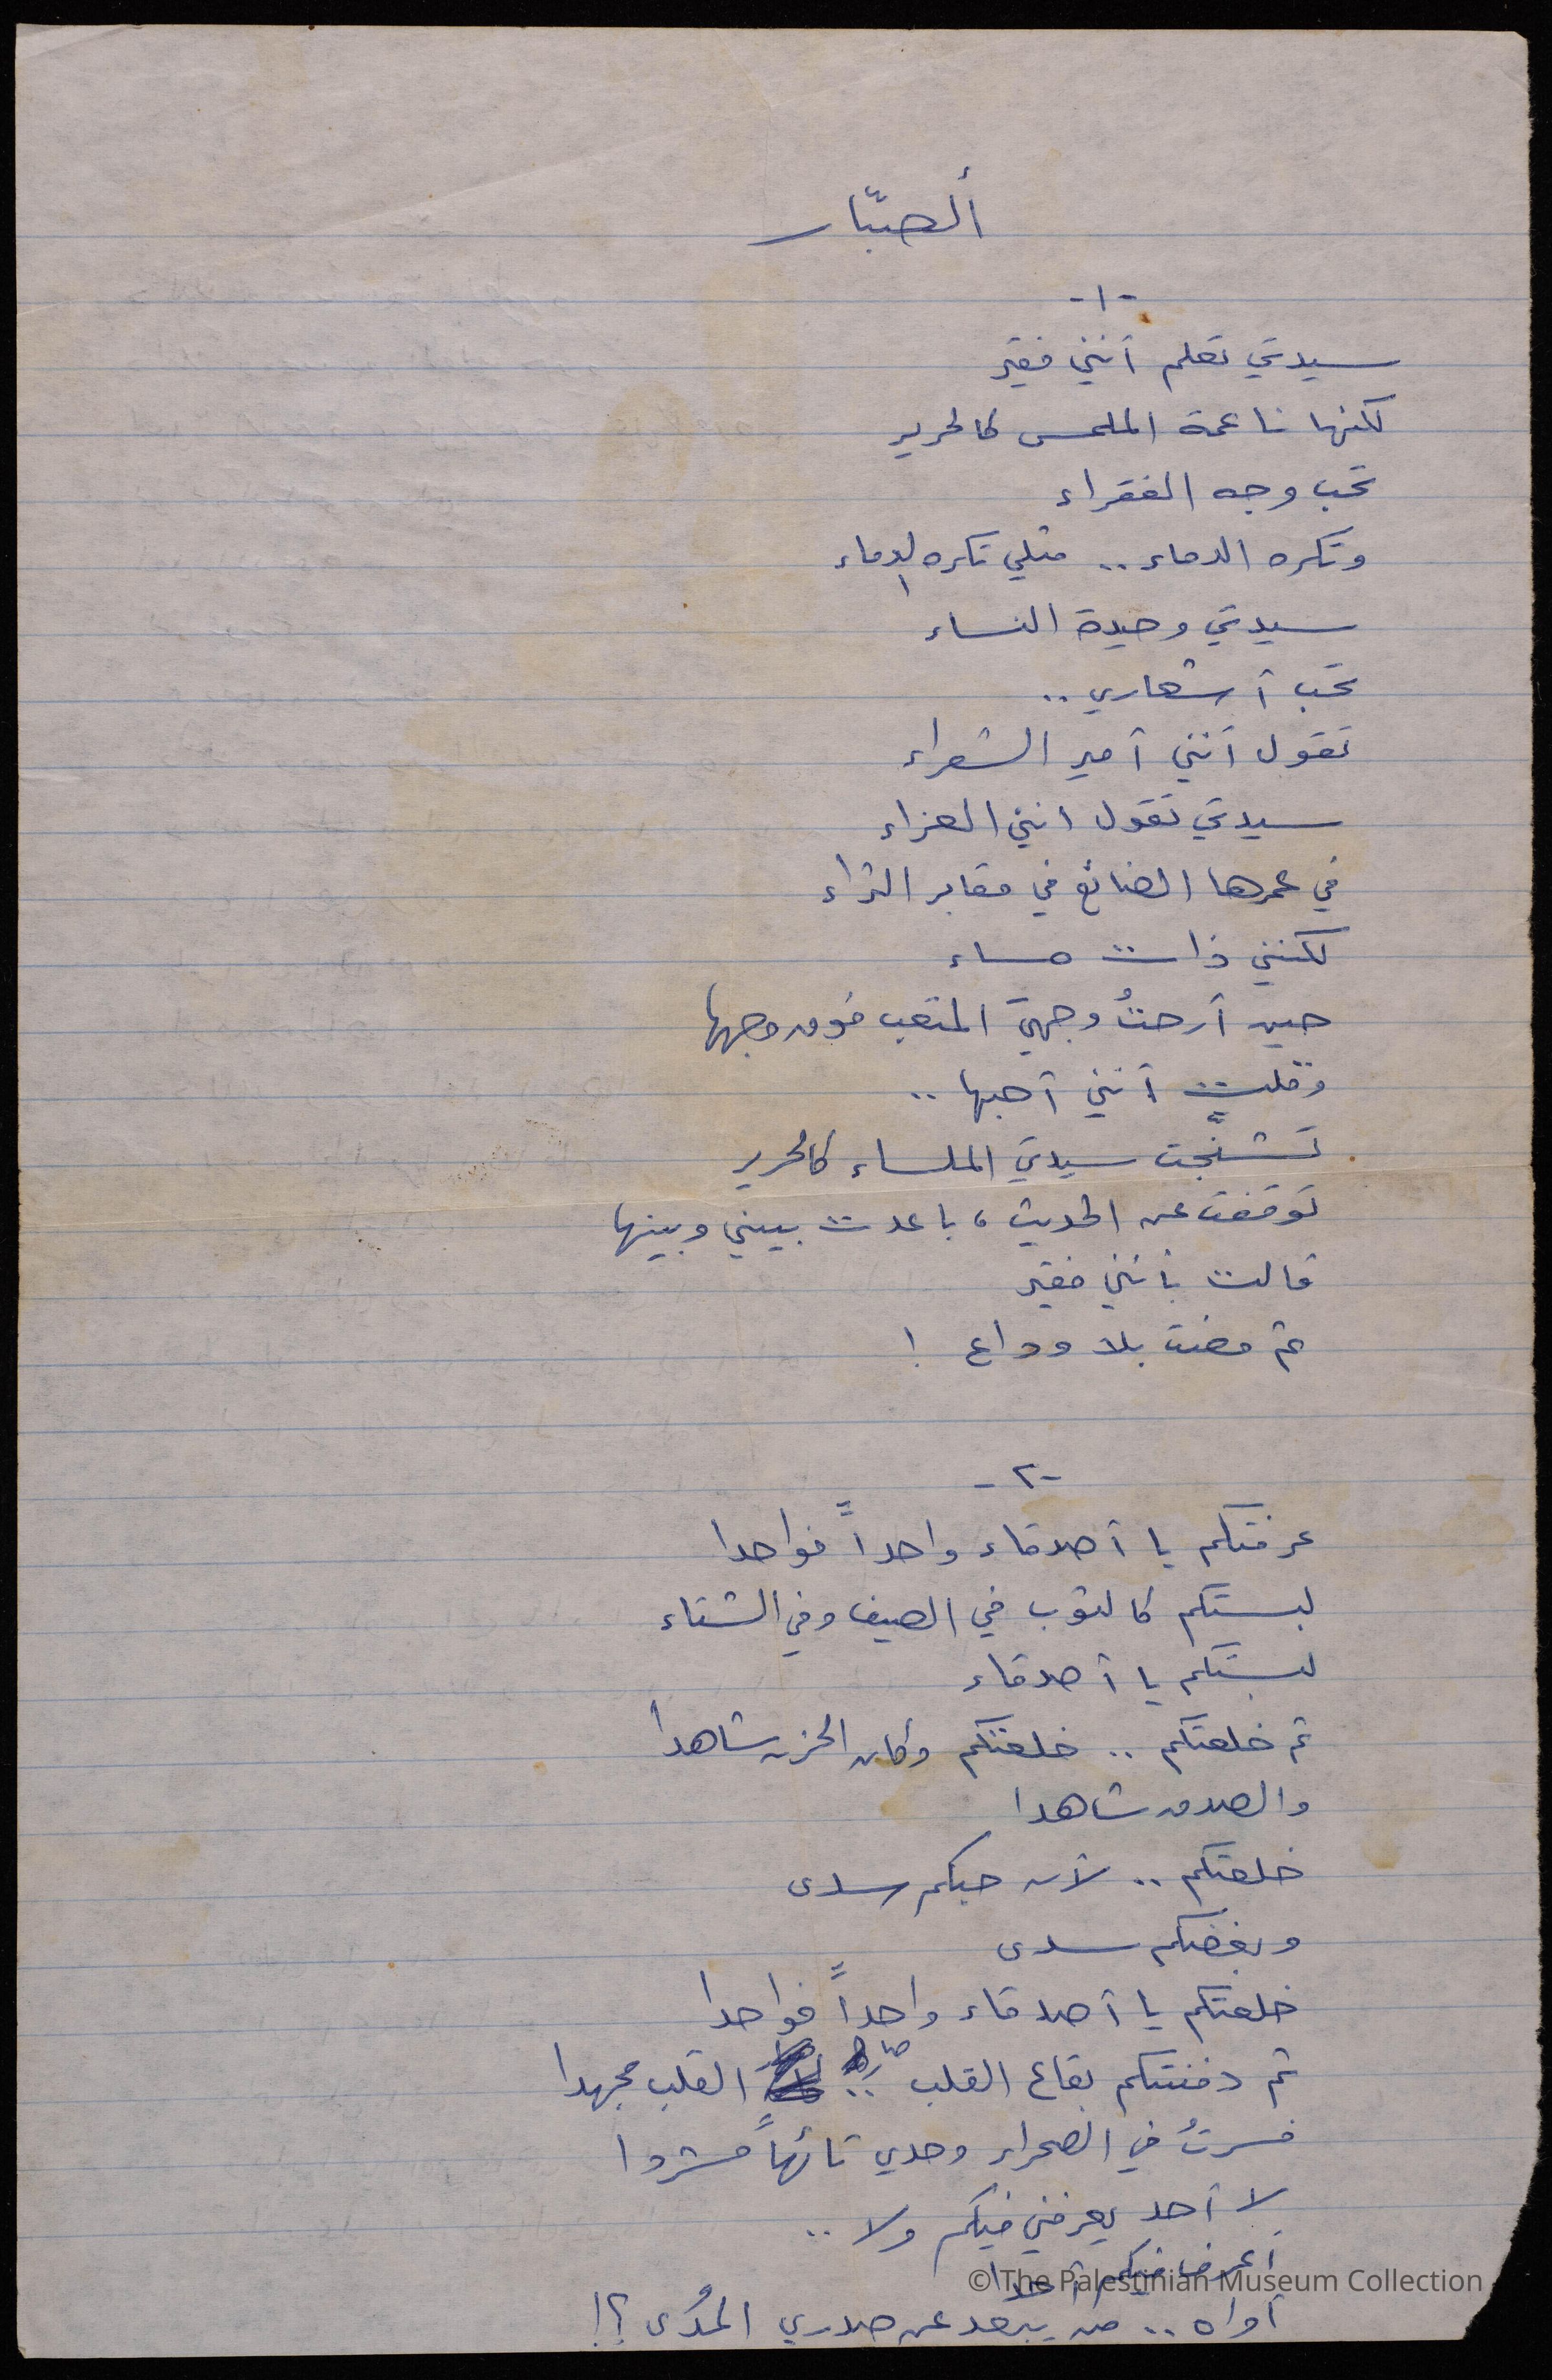 ألصبّار
-١-
سيدتي تعلم أنني فقير
لكنها ناعمة الملمس كالحرير
تحب وجه الفقراء
وتكره الدماء .. مثلي تكره الدماء
سيدتي وحيدة النساء
تحب أشعاري ..
تقول أنني أمير الشعراء
سيدتي تقول انني العزاء
في عمرها الضائع في مقابر الثراء
لكنني ذات مساء
حين أرحتُ وجهيَ المتعب فوق وجهها
وقلت أنني أحبها ..
تشنّجت سيدتي الملساء كالحرير
توقفت عن الحديث ، باعدت بيني وبينها
قالت بأنني فقير
ثم مضت بلا وداع !
-٢-
عرفتكم يا أصدقاء واحداً فواحدا
لبستكم كالثوب في الصيف وفي الشتاء
لبستكم يا أصدقاء
ثم خلعتكم .. خلعتكم وكان الحزن شاهدا
والصدق شاهدا
خلعتكم .. لأن حبكم سدى
وبغضكم سدى
خلعتكم يا أصدقاء واحداً فواحدا
ثم دفنتكم بقاع القلب .. صار القلب مجهدا
فسرتُ في الصحراء وحدي تائهاً مشردا
لا أحد يعرفني فيكم ولا ..
أعرف فيكم أحدا
أواه .. من يبعد عن صدري المُدى ؟!
© The Palestinian Museum Collection